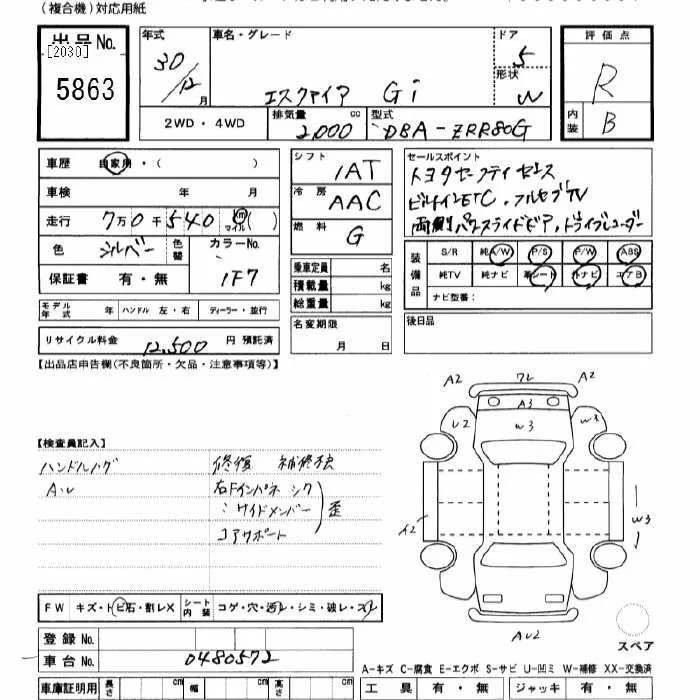 (複合機)対応用紙
出品No.
[2030]
5863
年式
30/12月
車名・グレード
エスクァイア Gi
ドア
5
形状
W
評価点
R
内装
B
2WD・4WD
排気量
2,000 cc
型式
DBA-ZRR80G
車歴 自家用・( )
車検 年 月
走行 7万0千540 km マイル ( )
色 シルバー 色替
カラーNo.
1F7
保証書 有・無
シフト
IAT
冷房
AAC
燃料
G
乗車定員 名
積載量 kg
総重量 kg
名変期限
月 日
セールスポイント
トヨタセーフティセンス
ビルトインETC、フルセグTV
両側パワースライドドア、ドライブレコーダー
装備品
S/R 純A/W P/S P/W ABS
純TV 純ナビ 革シート 外ナビ エアB
ナビ型番:
後日品
モデル年式 年 ハンドル 左・右 ディーラー・並行
リサイクル料金 12,500 円 預託済
【出品店申告欄(不良箇所・欠品・注意事項等)】
【検査員記入】
修復 補修強
右Fインパネ シワ
サイドメンバー
コアサポート
歪
A2 A2
A3
U2 W3 W3
A2 W3
AU2
スペア
FW キズ・トビ石・割レX
シート内装 コゲ・穴・汚レ・シミ・破レ・スレ
登録No.
車台No. 0480572
A-キズ C-腐食 E-エクボ S-サビ U-凹ミ W-補修 XX-交換済
車庫証明用 長さ cm 幅 cm 高さ cm
工具 有・無 ジャッキ 有・無